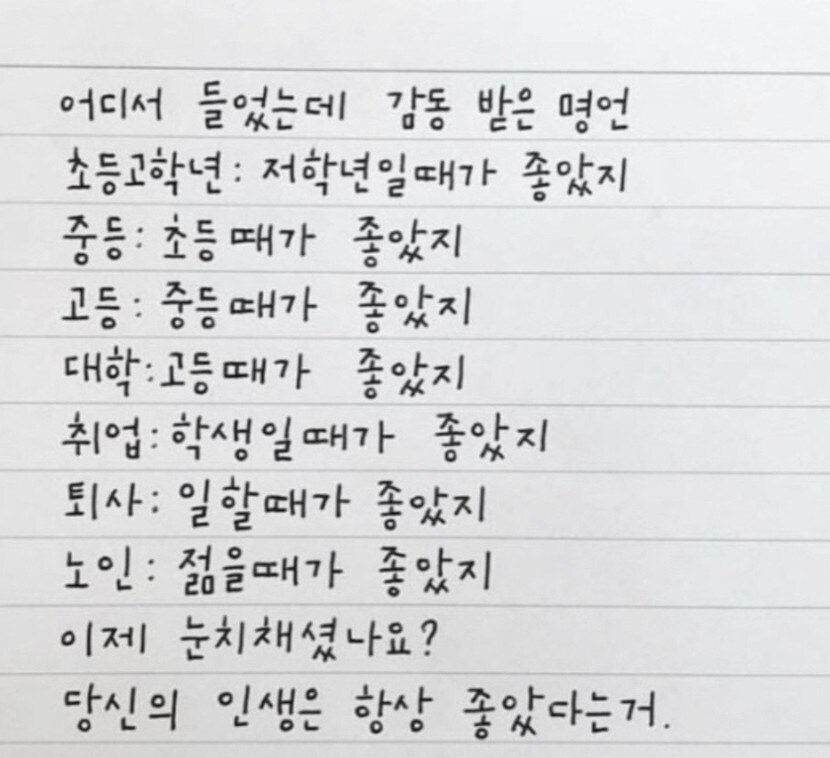 어디서 들었는데 감동 받은 명언
초등고학년: 저학년일때가 좋았지
중등: 초등때가 좋았지
고등: 중등때가 좋았지
대학:고등때가 좋았지
취업:학생일때가 좋았지
퇴사: 일할때가 좋았지
노인: 젊을때가 좋았지
이제 눈치채셨나요?
당신의 인생은 항상 좋았다는거.